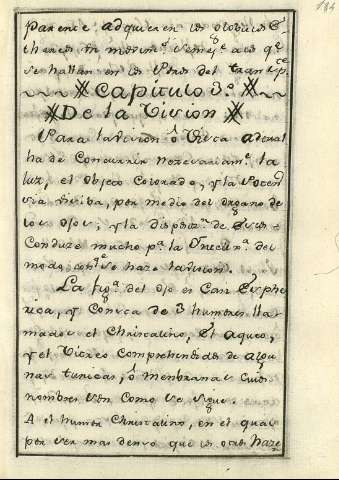 184
parence adquieren los globulos E-
thereos un movim.to semej.te a los q.e
se hallan en los Poros del Transp.te
Capitulo 3.o
De la Vision
Para la vision ô Vista actual
ha de concurrir necesariam.te la
luz, el objeto colorado, y la Potencia
visiva, por medio del organo de
los ojos; y la disposiz.n de estos
conduze mucho p.a la del
modo con q.e se haze la vision.
La fig.a del ojo es casi Esphe-
rica, y consta de 3 humores lla-
mados el Christalino, el Aqueo,
y el Vitreo comprehendidos de algu-
nas tunicas, ô membranas cuios
nombres son como se sigue.
A el humor Christalino, en el qual
por ser mas denso que los otros haze